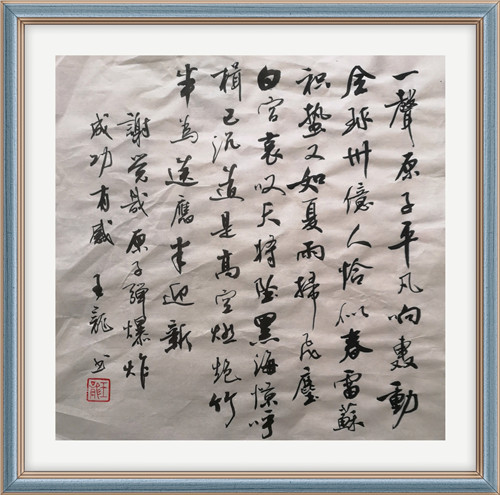 一聲原子平凡响轰動
全球卅億人恰似春雷蘇
积蛰又如夏雨掃民塵
白宫哀叹天将坠黑海惊呼
楫已沉道是高空燃炮竹
半为送舊半迎新
謝觉哉原子弹爆炸
成功有感 王龍书